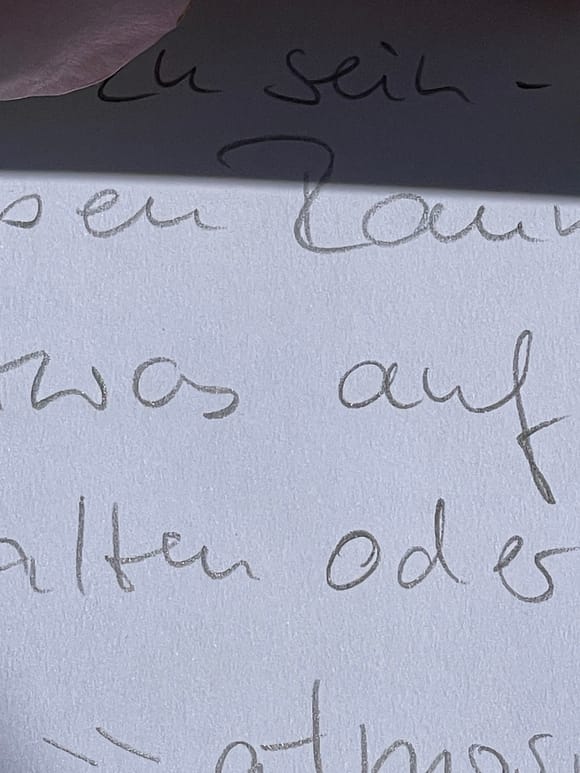 zu sein -
sen Raum
was auf
alten oder
atmos